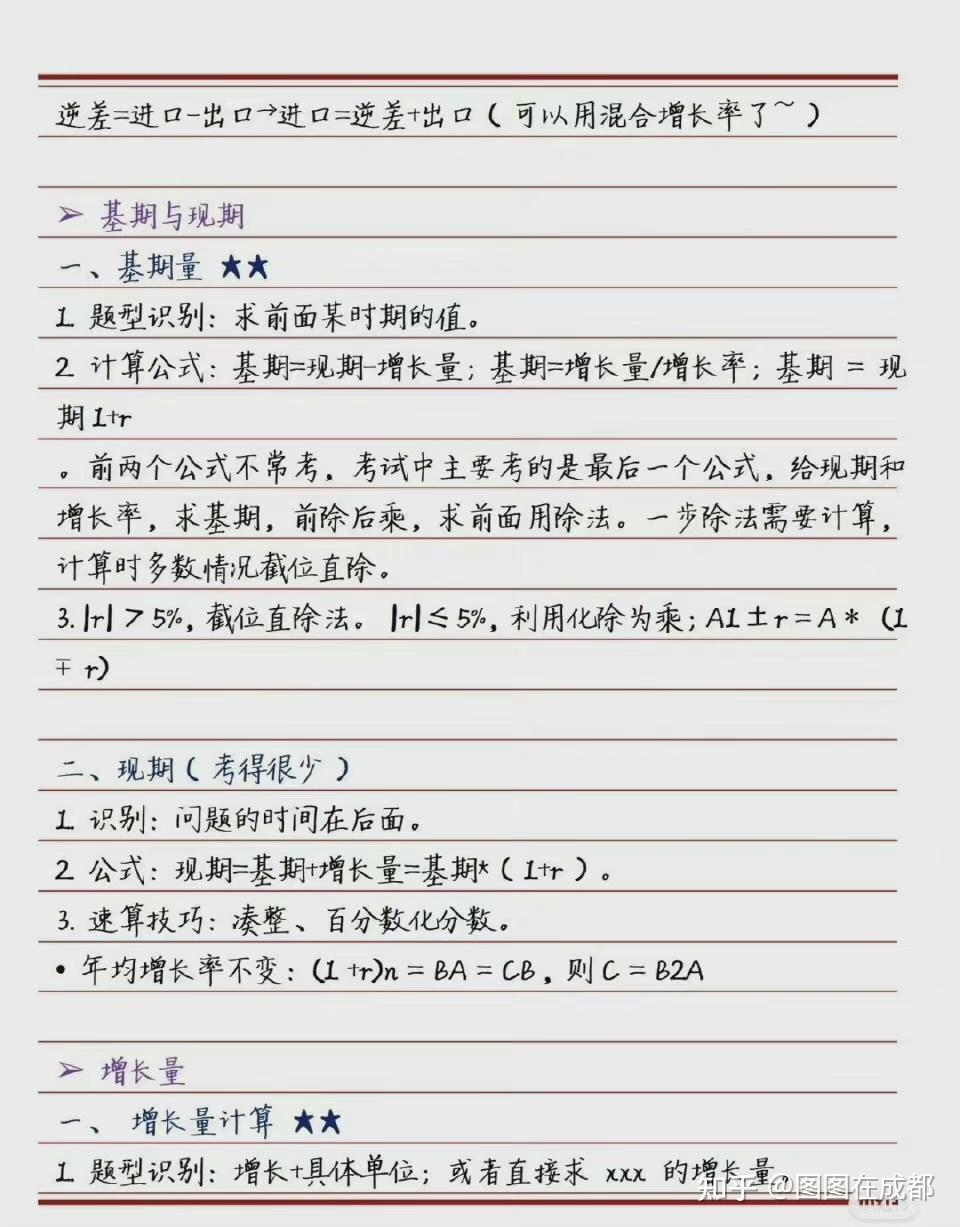 逆差=进口-出口→进口=逆差+出口（可以用混合增长率了~）
➢ 基期与现期
一、基期量 ★★
1. 题型识别：求前面某时期的值。
2. 计算公式：基期=现期-增长量；基期=增长量/增长率；基期 = 现
期1+r
。前两个公式不常考，考试中主要考的是最后一个公式，给现期和
增长率，求基期，前除后乘，求前面用除法。一步除法需要计算，
计算时多数情况截位直除。
3. |r| > 5%，截位直除法。 |r| ≤ 5%，利用化除为乘；A1 ± r = A *（1
∓ r）
二、现期（考得很少）
1. 识别：问题的时间在后面。
2. 公式：现期=基期+增长量=基期*（1+r）。
3. 速算技巧：凑整、百分数化分数。
• 年均增长率不变：(1 +r)n = BA = CB，则 C = B2A
➢ 增长量
一、 增长量计算 ★★
1. 题型识别：增长+具体单位；或者直接求 xxx 的增长量。
知乎 @图图在成都